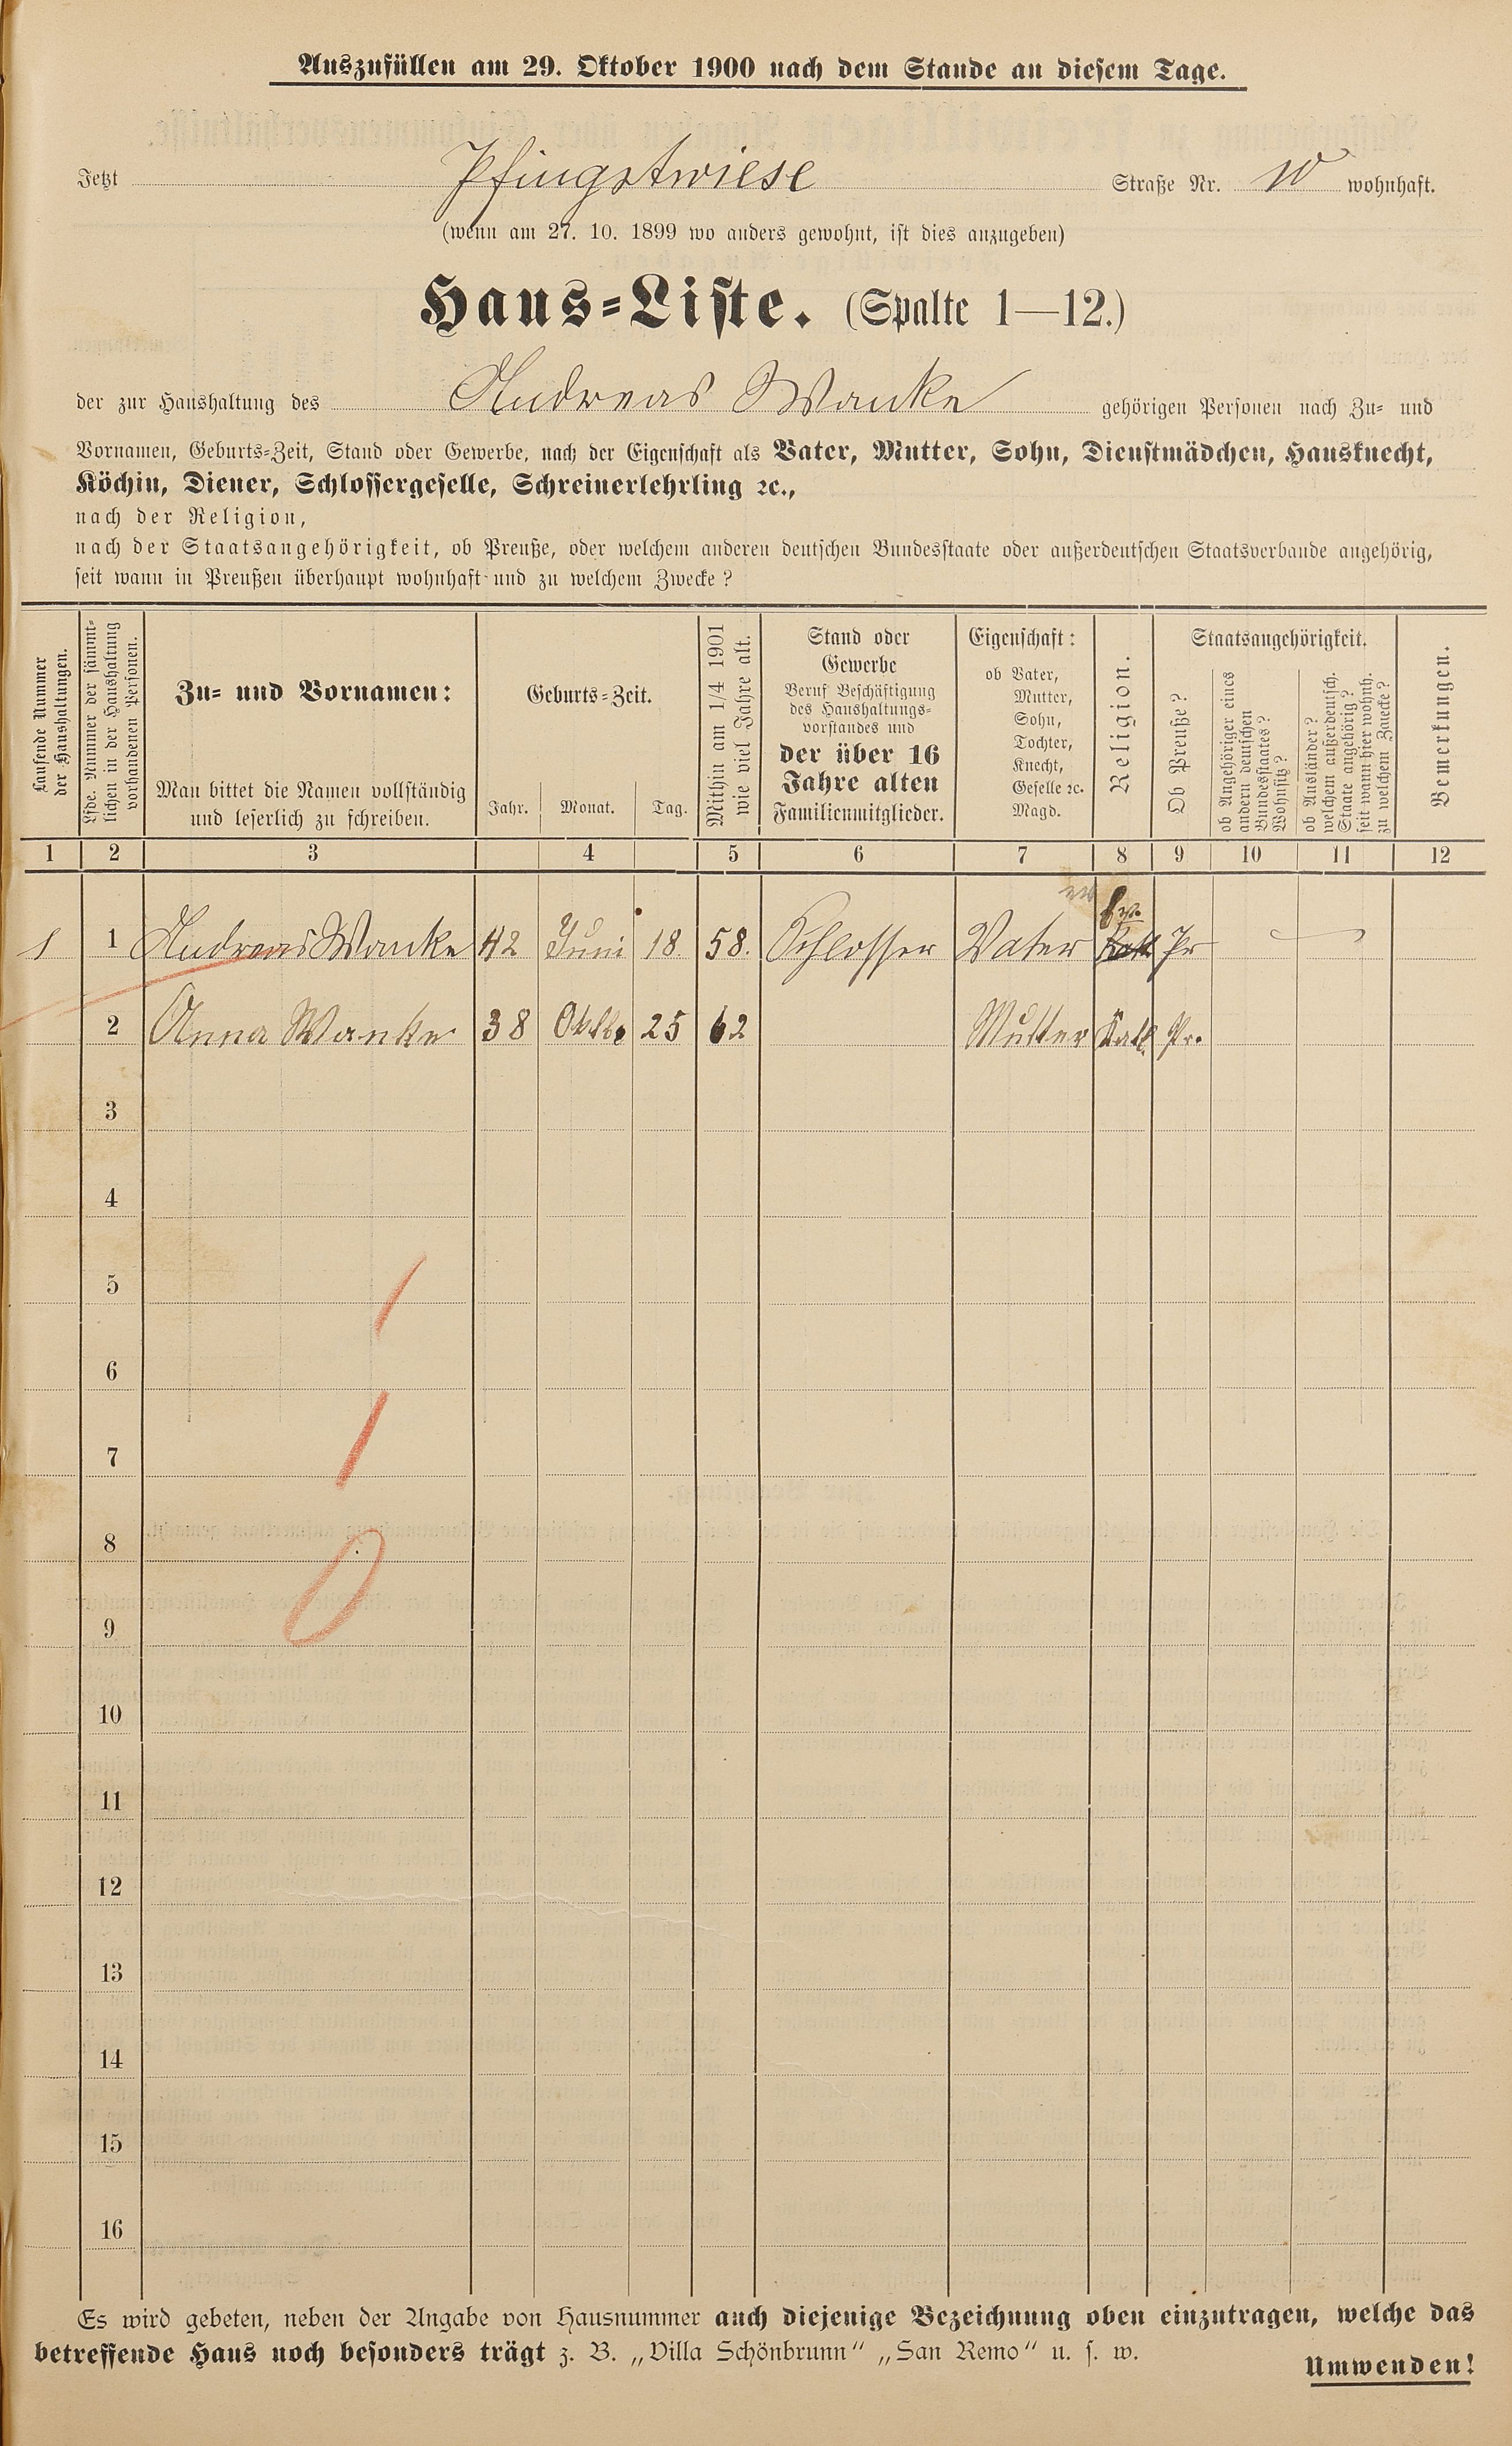 Auszufüllen am 29. Oktober 1900 nach dem Stande an diesem Tage.
Jetzt Pfingstwiese Straße Nr. 10 wohnhaft.
(wenn am 27. 10. 1899 wo anders gewohnt, ist dies anzugeben)
Haus-Liste. (Spalte 1—12.)
der zur Haushaltung des Andreas Wanke gehörigen Personen nach Zu- und
Vornamen, Geburts-Zeit, Stand oder Gewerbe, nach der Eigenschaft als Vater, Mutter, Sohn, Dienstmädchen, Hausknecht,
Köchin, Diener, Schlossergeselle, Schreinerlehrling ꝛc.,
nach der Religion,
nach der Staatsangehörigkeit, ob Preuße, oder welchem anderen deutschen Bundesstaate oder außerdeutschen Staatsverbande angehörig,
seit wann in Preußen überhaupt wohnhaft und zu welchem Zwecke?
Laufende Nummer
der Haushaltungen.
Lfde. Nummer der sämmt-
lichen in der Haushaltung
vorhandenen Personen.
Zu- und Vornamen:
Man bittet die Namen vollständig
und leserlich zu schreiben.
Geburts-Zeit.
Jahr. Monat. Tag.
Mithin am 1/4 1901
wie viel Jahre alt.
Stand oder
Gewerbe
Beruf Beschäftigung
des Haushaltungs-
vorstandes und
der über 16
Jahre alten
Familienmitglieder.
Eigenschaft:
ob Vater,
Mutter,
Sohn,
Tochter,
Knecht,
Geselle ꝛc.
Magd.
Religion.
Staatsangehörigkeit.
Ob Preuße?
ob Angehöriger eines
andern deutschen
Bundesstaates?
Wohnsitz?
ob Ausländer?
welchem außerdeutsch.
Staate angehörig?
seit wann hier wohnh.
zu welchem Zwecke?
Bemerkungen.
1 2 3 4 5 6 7 8 9 10 11 12
ev.
1 1 Andreas Wanke 42 Juni 18. 58. Schlosser Vater Kath Pr
2 Anna Wanke 38 Oktbr 25 62 Mutter Kath. Pr.
3
4
5
6
7
8
9
10
11
12
13
14
15
16
Es wird gebeten, neben der Angabe von Hausnummer auch diejenige Bezeichnung oben einzutragen, welche das
betreffende Haus noch besonders trägt z. B. „Villa Schönbrunn“ „San Remo“ u. s. w.
Umwenden!